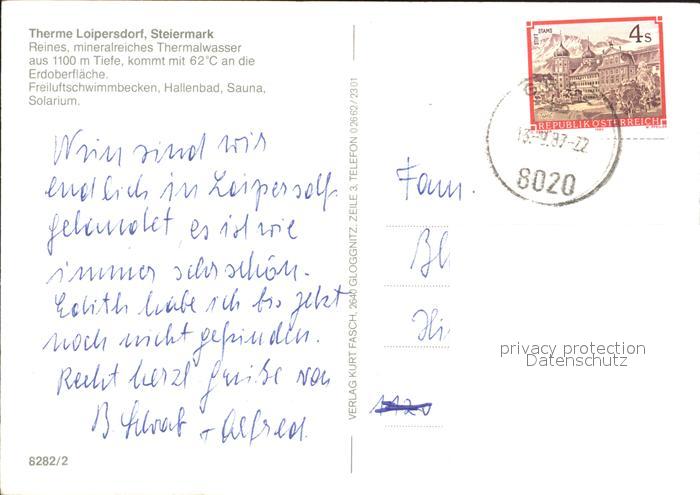 Therme Loipersdorf, Steiermark
Reines, mineralreiches Thermalwasser
aus 1100 m Tiefe, kommt mit 62°C an die
Erdoberfläche.
Freiluftschwimmbecken, Hallenbad, Sauna,
Solarium.
Nun sind wir
endlich in Loipersdf.
gelandet, es ist wie
immer sehr schön.
Edith habe ich bis jetzt
noch nicht gefunden.
Recht herzl Grüße von
B. + Alfred.
8282/2
VERLAG KURT FASCH, 2640 GLOGGNITZ, ZEILE 3, TELEFON 02662/2301
STIFT STAMS
4s
REPUBLIK ÖSTERREICH
87-22
8020
Fam.
Bl
Hi
1120
privacy protection
Datenschutz